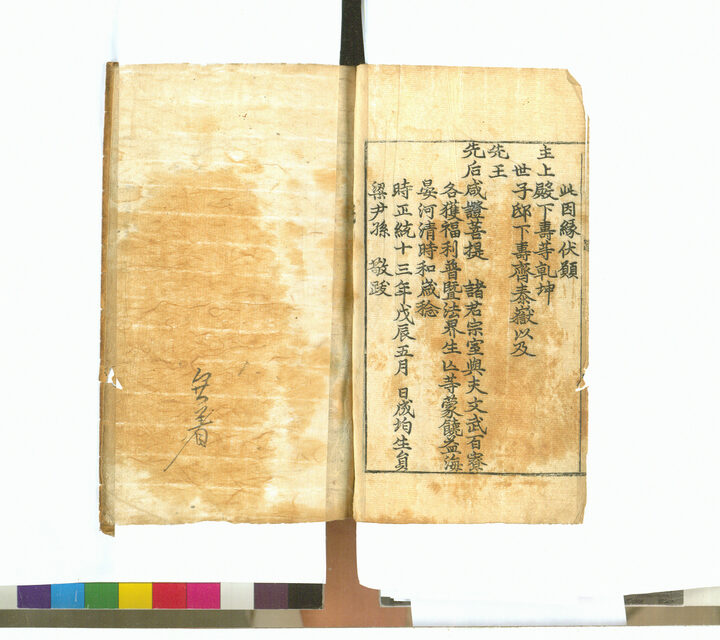 此因緣伏願
主上殿下壽等乾坤
世子邸下壽齊泰嶽以及
先王
先后咸證菩提 諸君宗室與夫文武百寮
各獲福利普曁法界生亡等蒙饒益海
晏河清時和歲稔
時正統十三年戊辰五月 日成均生員
梁尹孫 敬跋